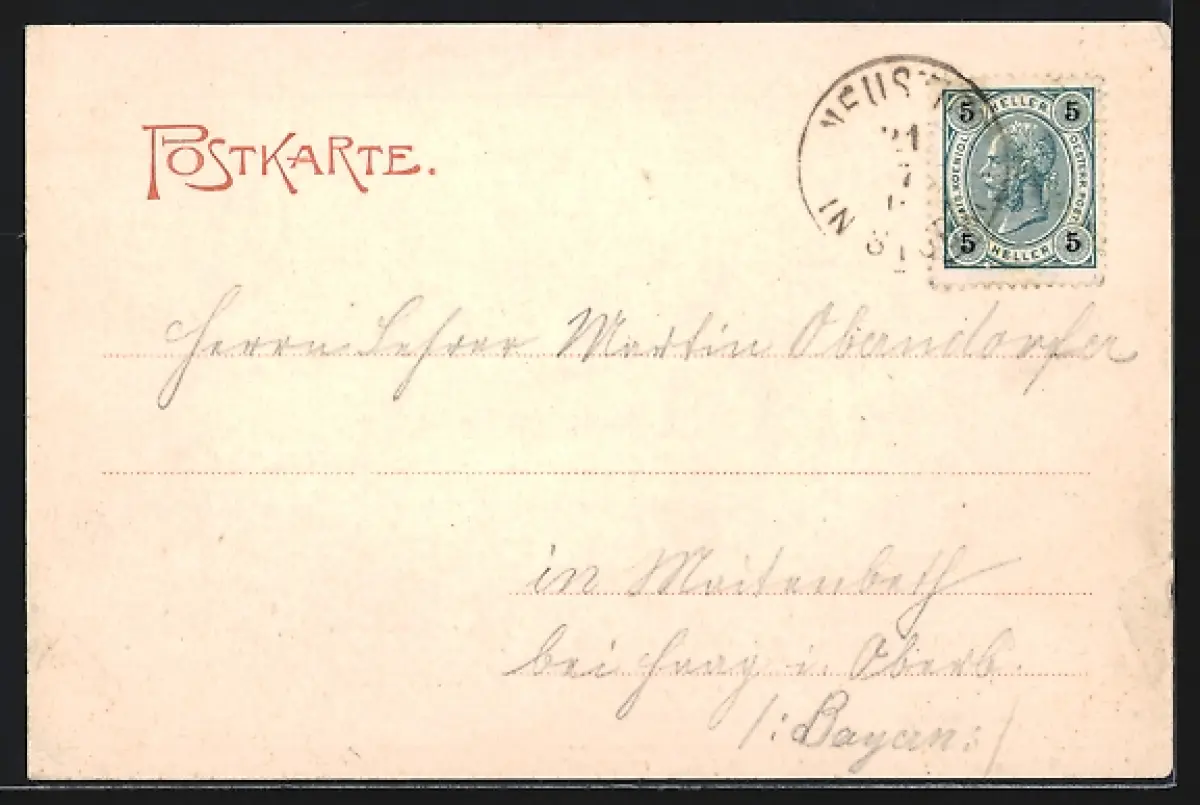 POSTKARTE.
NEUST
21
7
IN
5 HELLER 5
KAIS. KOENIGL. OESTERR. POST.
5 HELLER 5
Herrn Lehrer Martin Oberndorfer
in Maitenbeth
bei Haag i. Oberb.
/: Bayern :/